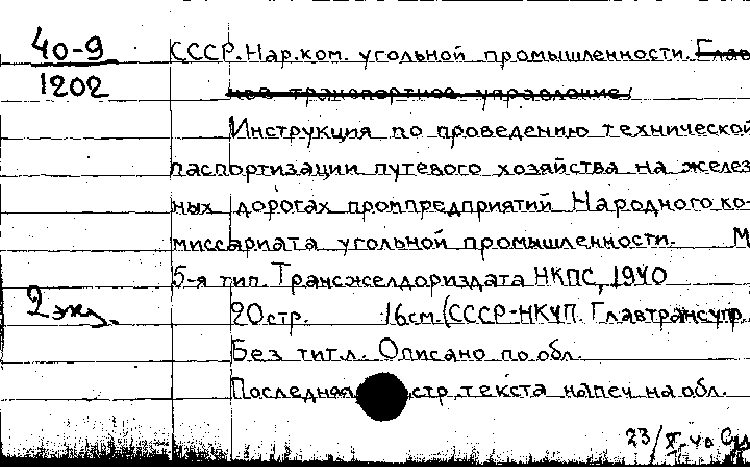 40-9
1202
СССР. Нар.ком. угольной промышленности. Глав
ное транспортное управление/
Инструкция по проведению технической
паспортизации путевого хозяйства на желез
ных дорогах промпредприятий Народного ко-
миссариата угольной промышленности. М
5-я тип. Трансжелдориздата НКПС, 1940
2 экз.
20стр. 16см. (СССР-НКУП. Главтрансупр.
Без титл. Описано по обл.
Последняя стр. текста напеч. на обл.
23/X-40